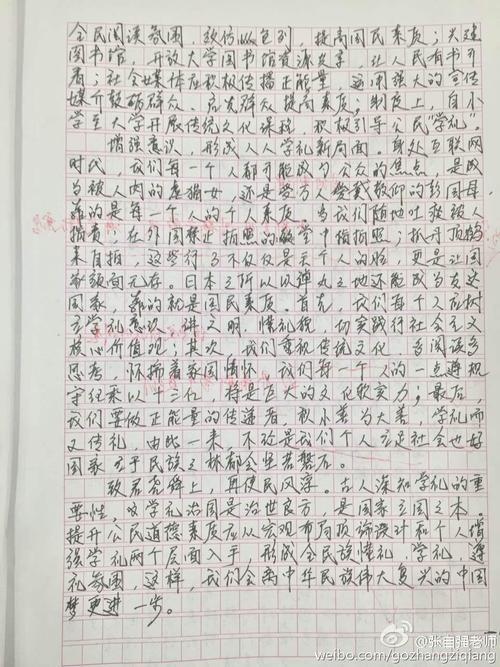 全民阅读氛围，效仿以色列，提高国民素质；兴建
图书馆，开放大学图书馆资源共享，让人民有书可
看；社会媒体应积极传播正能量，运用强大的宣传
媒介鼓励群众、启发群众提高素质；制度上，自小
学至大学开展传统文化课程，积极引导公民"学礼"。
增强意识，形成人人学礼新局面。身处互联网
时代，我们每一个人都可能成为公众的焦点，是成
为被人肉的 女，还是受万人爱戴敬仰的彭国母，
靠的是每一个人的个人素质。当我们随地吐痰被人
指责；在外国禁止拍照的教堂中偷拍照；
来自拍，这些行为不仅仅是丢个人的脸，更是让国
家颜面无存。日本之所以以弹丸之地还能成为发达
国家，靠的就是国民素质。首先，我们每个人应树
立学礼意识，讲文明，懂礼貌，切实践行社会主义
核心价值观；其次，我们重视传统文化，多阅读多
思考，怀揣着家国情怀，我们每一个人的一点遵规
守纪乘以十三亿，将是巨大的文化软实力；最后，
我们要做正能量的传递者，积小善为大善，学礼而
又传礼，由此一来，不论是我们个人立足社会也好
国家立于民族之林都会坚若磐石。
致君尧舜上，再使民风淳。古人深知学礼的重
要性，以学礼治国是治世良方，是国家立国之本。
提升公民道德素质应从宏观布局顶端设计和个人增
强学礼两个层面入手，形成全民族懂礼，学礼，遵
礼氛围，这样，我们会离中华民族伟大复兴的中国
梦更进一步。
@张自强老师
weibo.com/gozhangziqiang